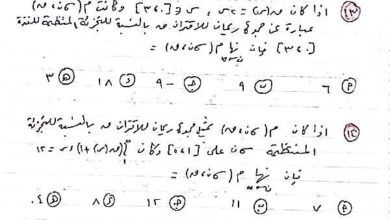 (١٣) اذا كان ق(س) = ٢س ، س ∈ [٣،٠] وكانت م (σن ، ق)
عبارة عن مجموع ريمان للاقتران ق بالنسبة للتجزئة المنتظمة للفترة
[٣،٠] فإن نها م (σن ، ق) =
٦ (أ) ٩ (ب) ٩- (ج) ١٨ (د) ٣ (هـ)
(١٤) اذا كان م (σن ، ق) تمثل مجموع ريمان للاقتران ق بالنسبة للتجزئة
المنتظمة σن على وكان (ق(س) + ١) دس = ١٢
فإن نها م (σن ، ق) =
٧ (أ) ١١ (ب) ١٢ (ج) ٨ (د) (هـ)